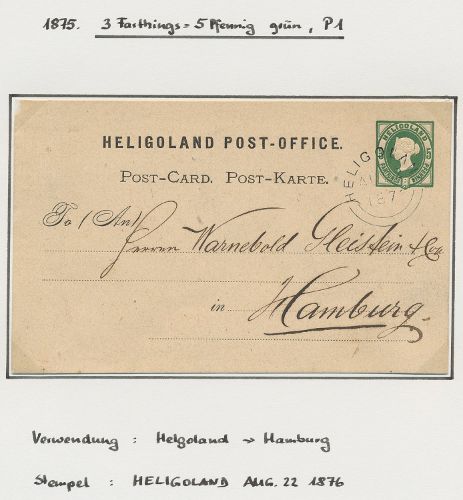 1875. 3 Farthings = 5 Pfennig grün, P1
HELIGOLAND POST-OFFICE.
HELIGOLAND
POST-CARD. POST-KARTE.
HELIGO
187
To / An
Herren Warnebold Gleistein & Co.
in Hamburg
Verwendung : Helgoland → Hamburg
Stempel : HELIGOLAND AUG. 22 1876